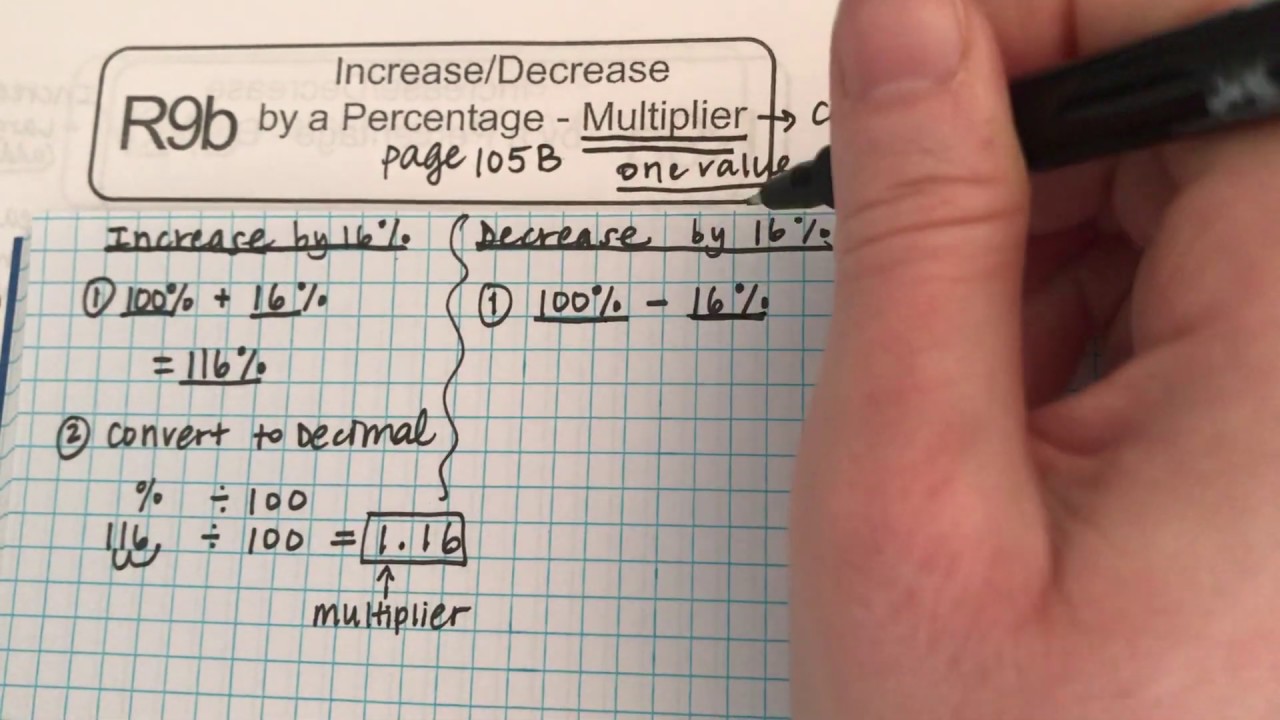 Increase/Decrease
R9b by a Percentage - Multiplier →
page 105B one value
Increase by 16%
① 100% + 16%
= 116%
② convert to Decimal
% ÷ 100
116 ÷ 100 = 1.16
↑
multiplier
Decrease by 16%
① 100% - 16%